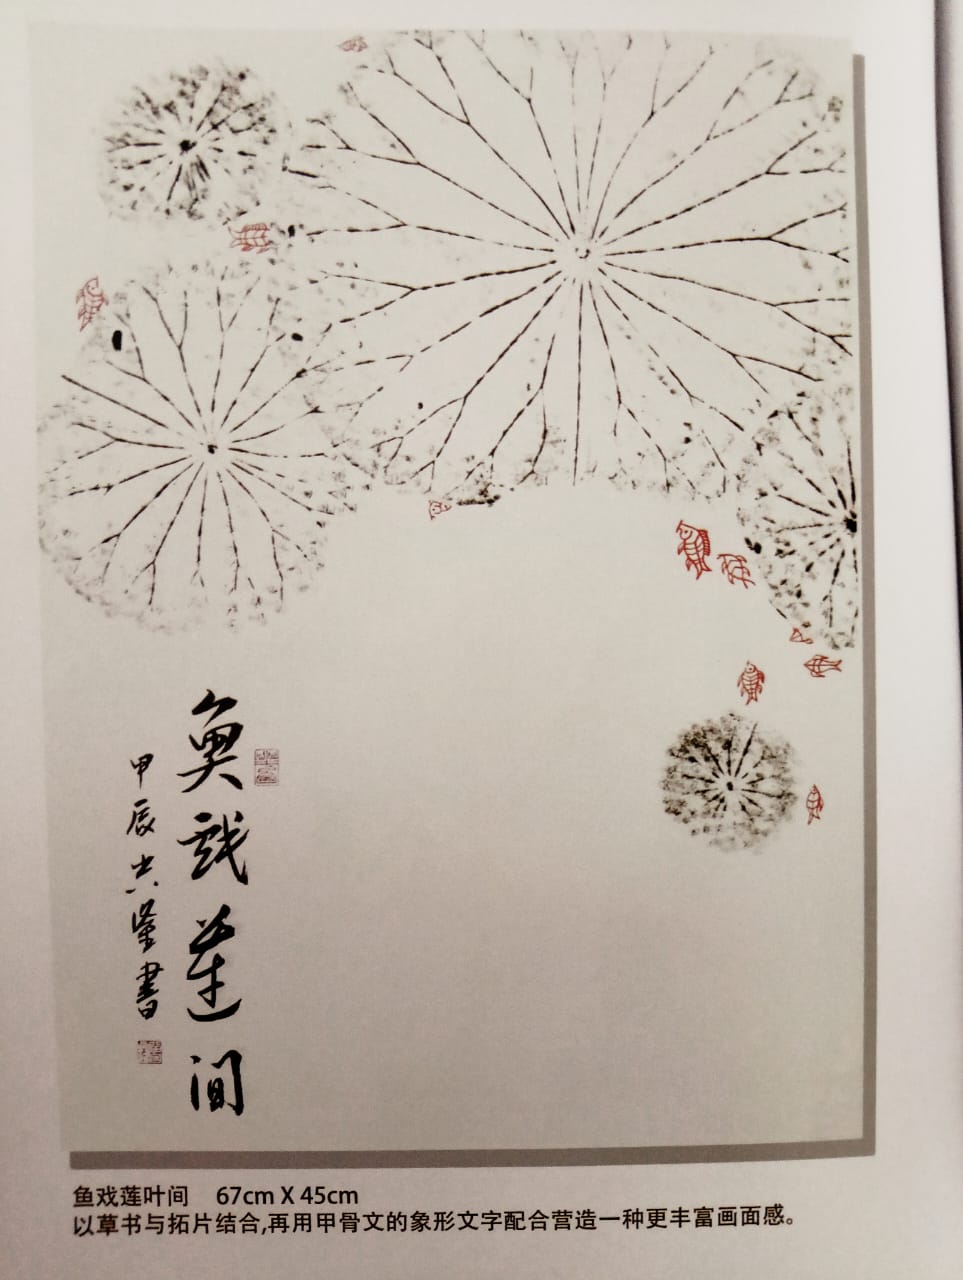 魚戏莲间
甲辰 书
鱼戏莲叶间 67cm X 45cm
以草书与拓片结合,再用甲骨文的象形文字配合营造一种更丰富画面感。